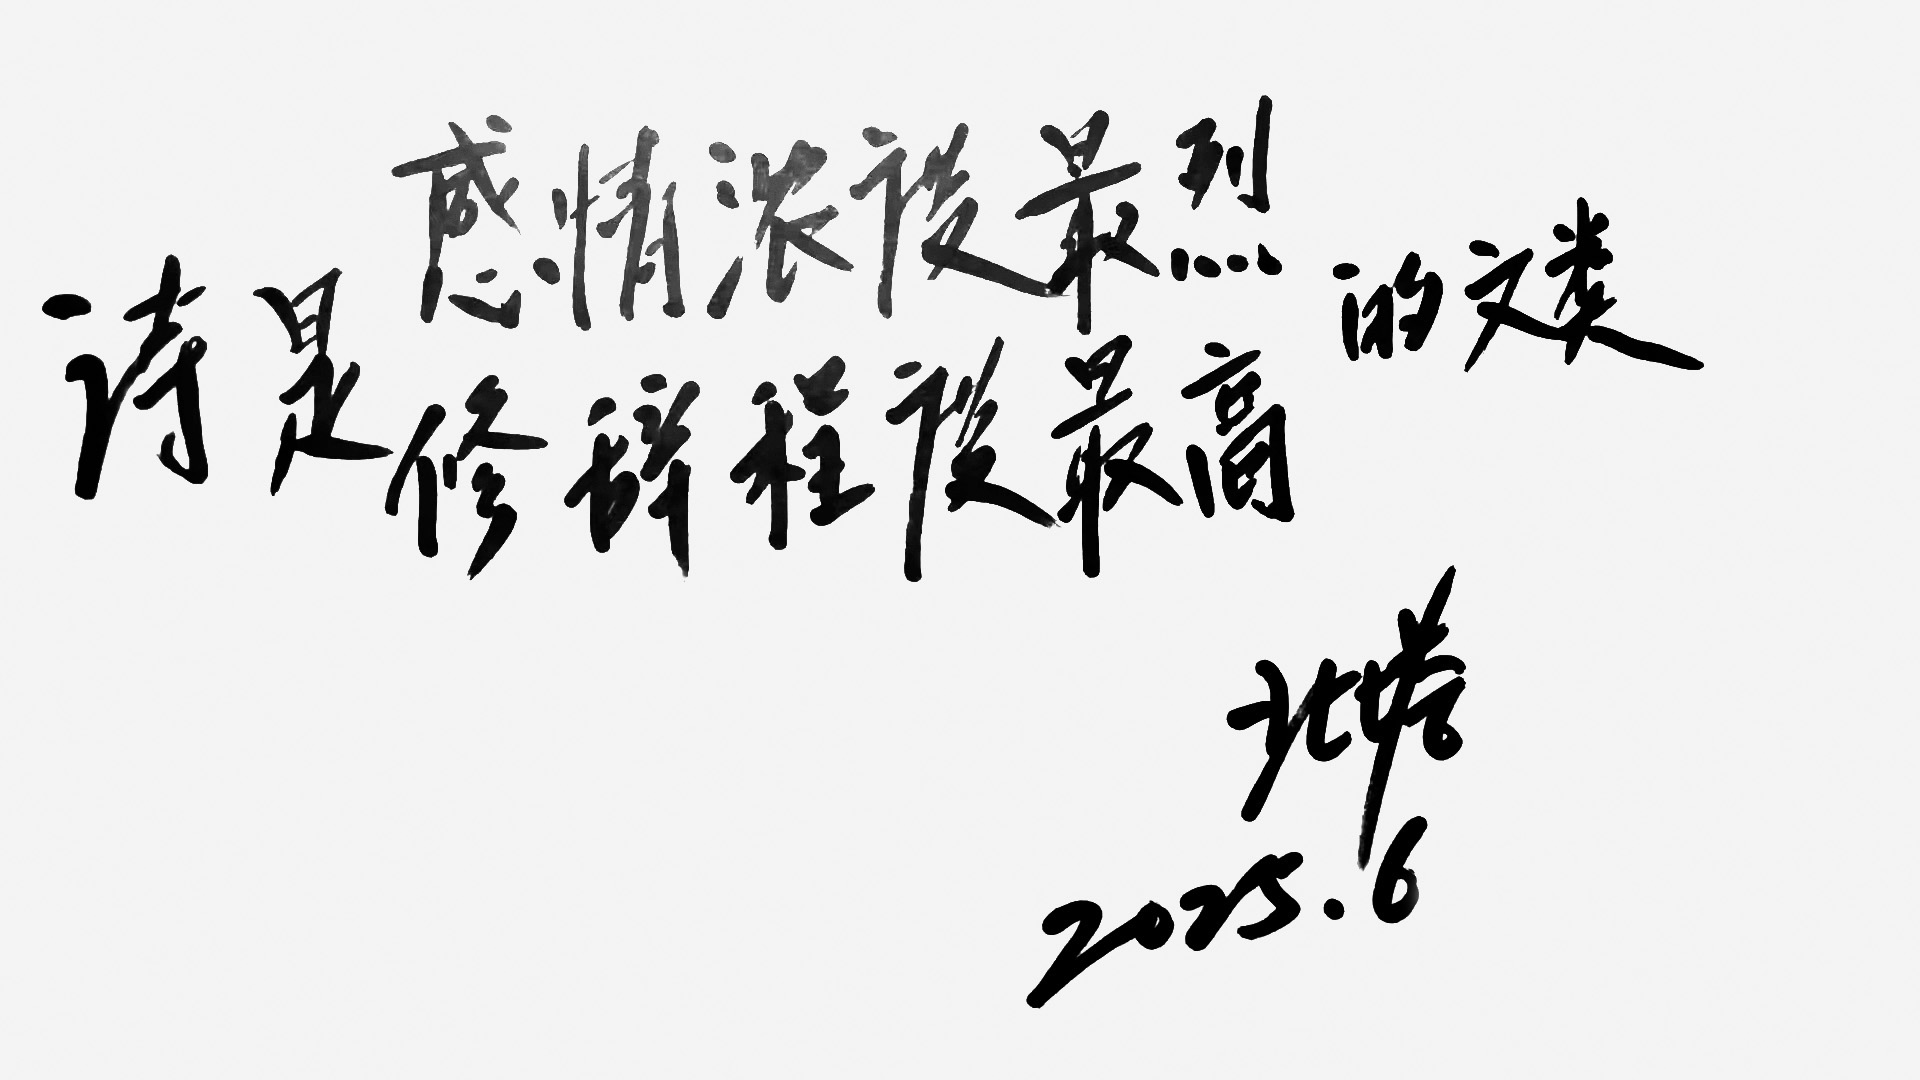 诗是
感情浓度最烈
修辞程度最高
的文类
北塔
2025.6